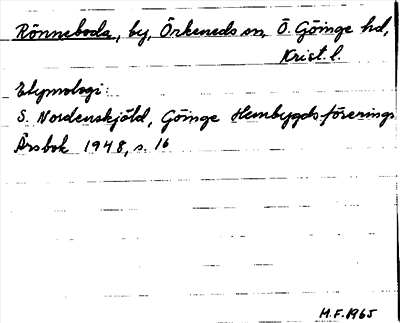 Rönneboda, by, Örkeneds sn, Ö. Göinge hd,
Krist. l.
Etymologi:
S. Nordenskjöld, Göinge Hembygdsförenings
Årsbok 1948, s. 16
M.F. 1965